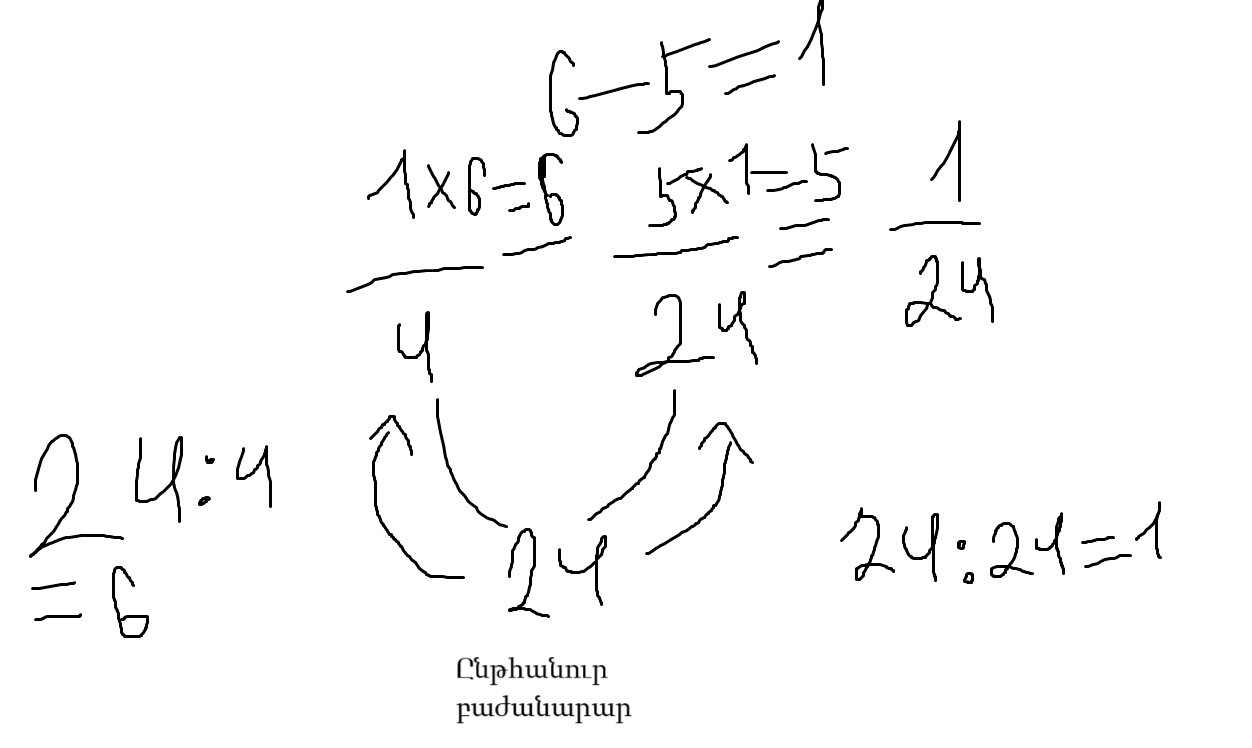 6 — 5 = 1
1 x 6 = 6 5 x 1 = 5 1
— = —
4 24 24
24 : 4
= 6
24
24 : 24 = 1
Ընթհանուր
բաժանարար